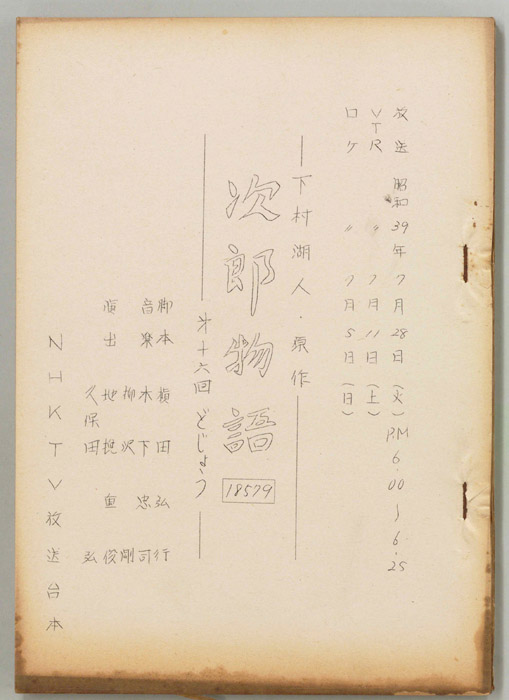 放送 昭和39年7月28日(火) P.M 6.00〜6.25
VTR 〃 7月11日(土)
ロケ 〃 7月5日(日)
―下村湖人・原作―
次郎物語
18579
―才十六回 どじょう―
脚本 横田弘行
音楽 木下忠司
柳沢 剛
演出 地挽重俊
久保田 弘
NHKTV放送台本